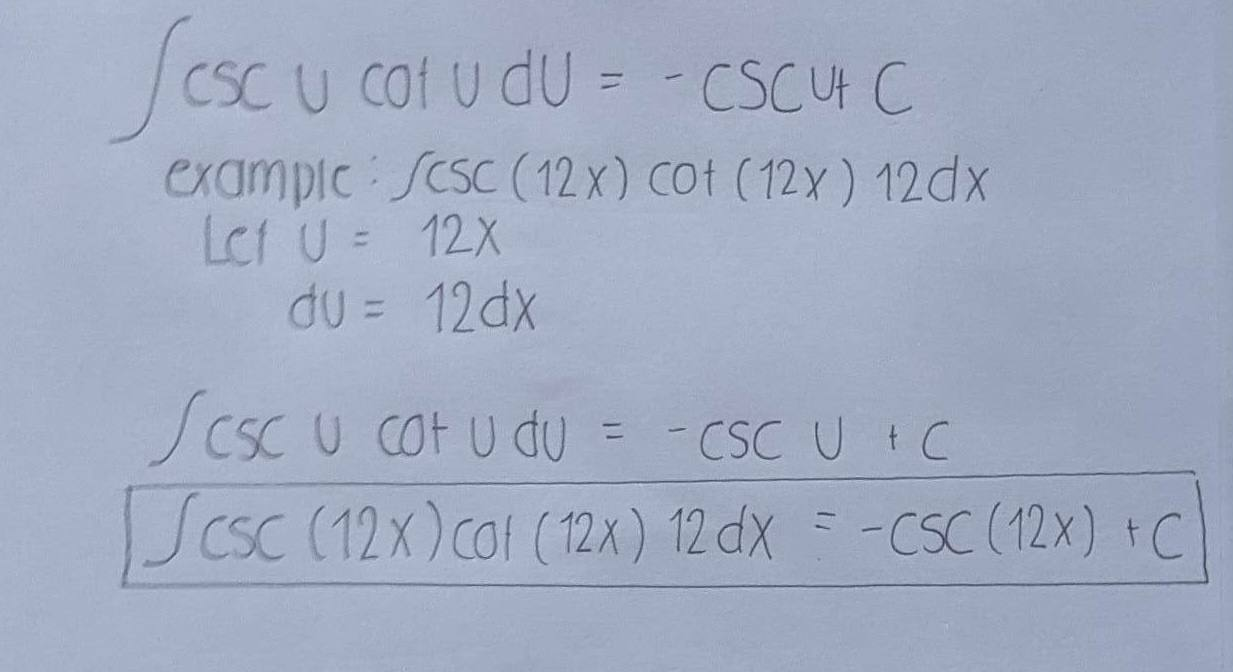 ∫csc u cot u du = -csc u + C
example: ∫csc(12x) cot(12x) 12dx
Let u = 12x
du = 12dx
∫csc u cot u du = -csc u + C
∫csc(12x)cot(12x) 12dx = -csc(12x) + C